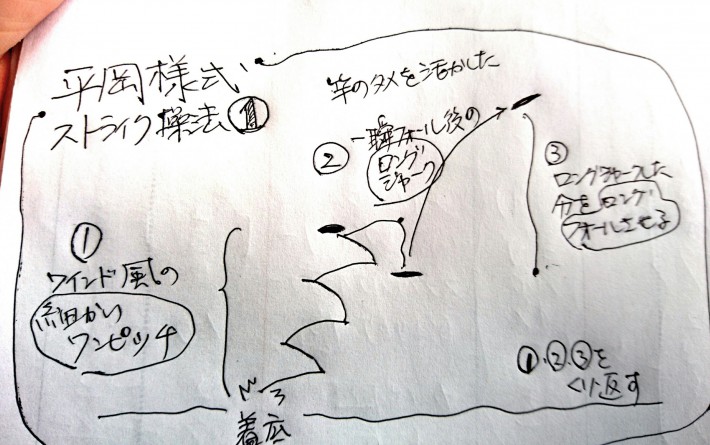 平岡様式
ストライク操法①
竿のタメを活かした
②
一瞬フォール後の
ロング
ジャーク
③
ロングジャークした
分をロング
フォールさせる
①
ワインド風の
細かい
ワンピッチ
着底
①、②、③を
くり返す